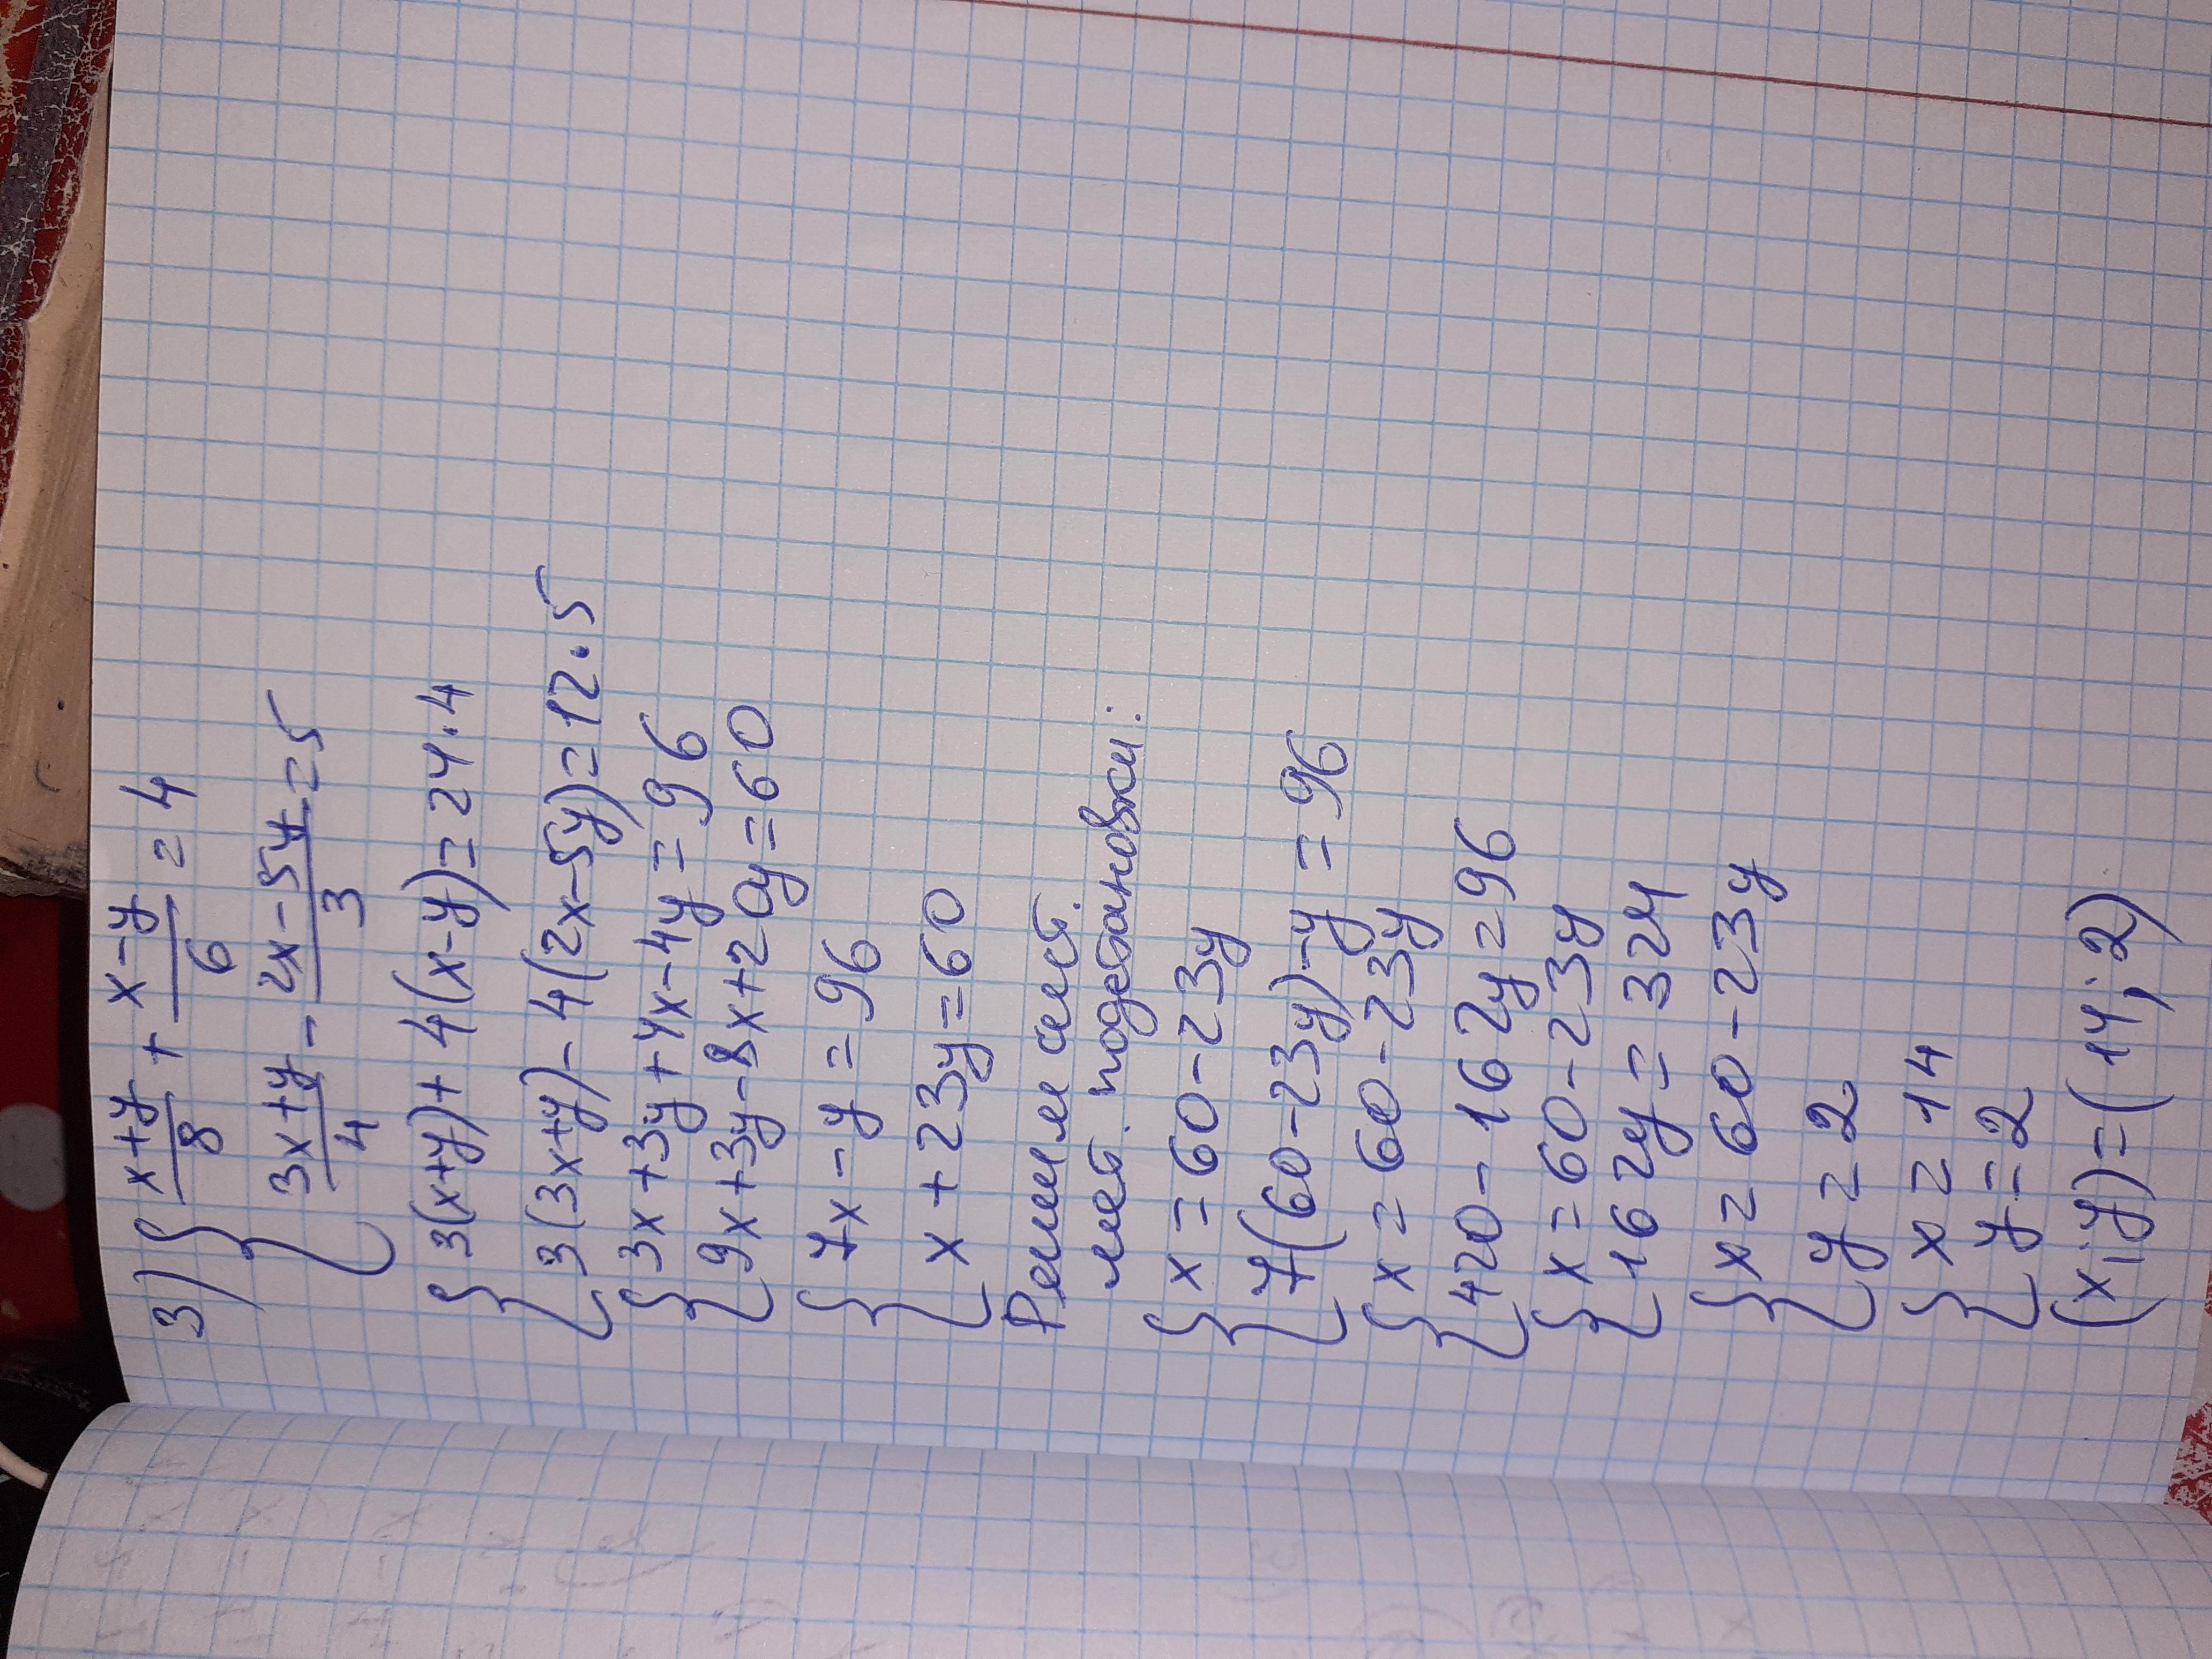 3) { (x+y)/8 + (x-y)/6 = 4
{ (3x+y)/4 - (2x-5y)/3 = 5
{ 3(x+y)+4(x-y)=24·4
{ 3(3x+y)-4(2x-5y)=12·5
{ 3x+3y+4x-4y=96
{ 9x+3y-8x+20y=60
{ 7x-y=96
{ x+23y=60
Решим сист.
мет. подстановки:
{ x=60-23y
{ 7(60-23y)-y=96
{ x=60-23y
{ 420-162y=96
{ x=60-23y
{ 162y=324
{ x=60-23y
{ y=2
{ x=14
{ y=2
(x;y)=(14;2)